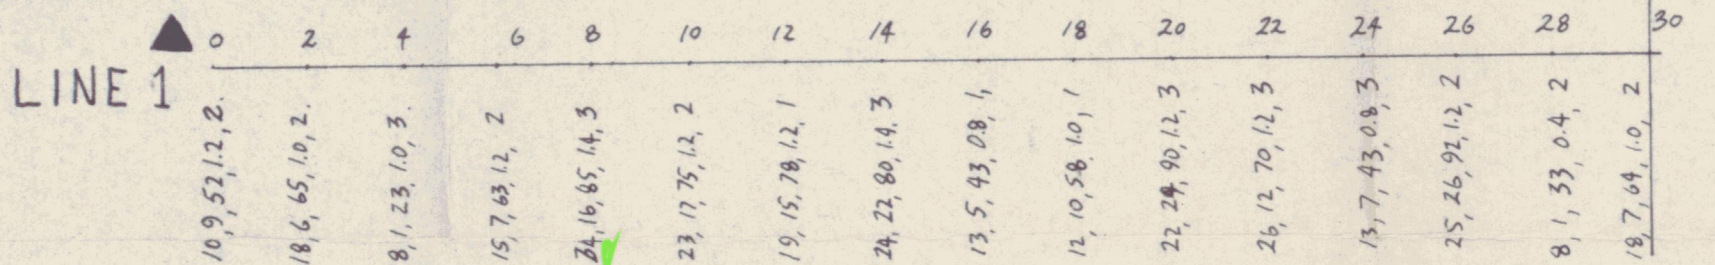 0 2 4 6 8 10 12 14 16 18 20 22 24 26 28 30
LINE 1
10, 9, 52, 1.2, 2.
18, 6, 65, 1.0, 2.
8, 1, 23, 1.0, 3.
15, 7, 63, 1.2, 2
34, 16, 85, 1.4, 3
23, 17, 75, 1.2, 2
19, 15, 78, 1.2, 1
24, 22, 80, 1.4, 3
13, 5, 43, 0.8, 1,
12, 10, 58, 1.0, 1
22, 24, 90, 1.2, 3
26, 12, 70, 1.2, 3
13, 7, 43, 0.8, 3
25, 26, 92, 1.2, 2
8, 1, 33, 0.4, 2
18, 7, 64, 1.0, 2